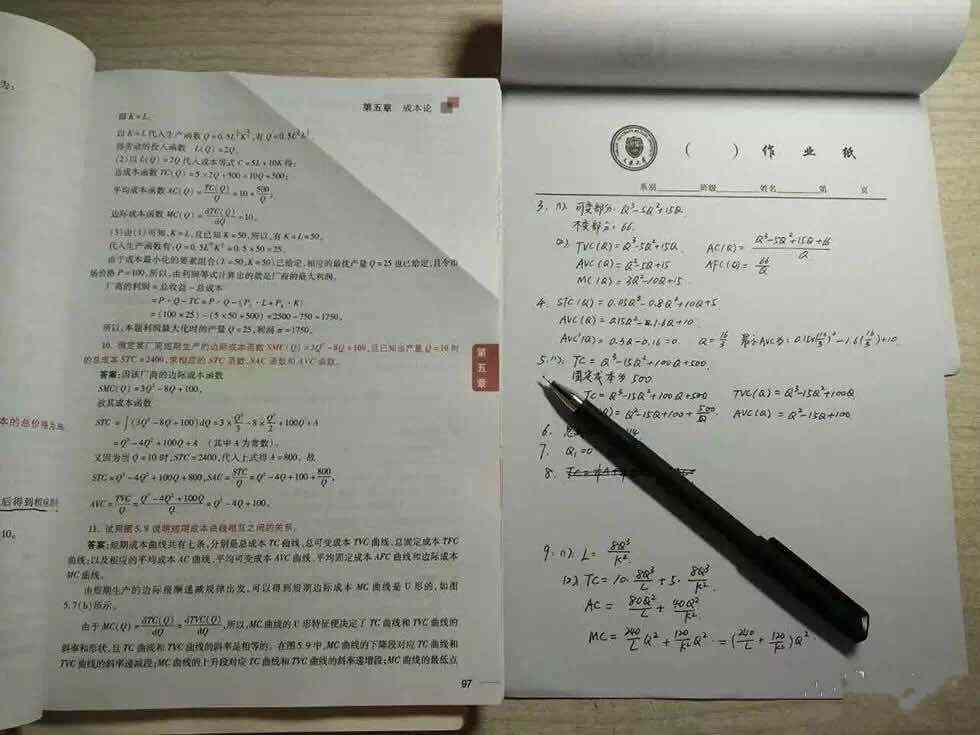 第五章 成本论
即K=L。
以K=L代入生产函数Q=0.5L
得劳动的投入函数 L(Q)=2Q。
(2)以L(Q)=2Q代入成本等式C=5L+10K得:
总成本函数TC(Q)=5×2Q+500
平均成本函数AC(Q)=TC(Q)/Q=10+500/Q
边际成本函数MC(Q)=dTC(Q)/dQ=10。
(3)由(1)可知,K=L,且已知K=50,所以,有K=L=50。
代入生产函数有:Q=0.5×50=25
由于成本最小化的要素组合(L=50,K=50)已给定,相应的最优产量Q=25也已给定,且令市
场价格P=100,所以,由利润等式计算出的就是厂商的最大利润。
厂商的利润=总收益-总成本
=P·Q-TC=P·Q-(P_L·L+P_K·K)
=(100×25)-(5×50+500)=2500-750=1750。
所以,本题利润最大化时的产量Q=25,利润π=1750。
10. 假定某厂商短期生产的边际成本函数SMC(Q)=3Q²-8Q+100,且已知当产量Q=10时
的总成本STC=2400,求相应的STC函数、SAC函数和AVC函数。
答案:因该厂商的边际成本
SMC(Q)=3Q²-8Q+100,
故其成本函数
STC=∫(3Q²-8Q+100)dQ=3×Q³/3-8×Q²/2+100Q+A
=Q³-4Q²+100Q+A (其中A为常数)。
又因为当Q=10时,STC=2400,代入上式得A=800。故
STC=Q³-4Q²+100Q+800,SAC=STC/Q=Q²-4Q+100+800/Q,
AVC=TVC/Q=(Q³-4Q²+100Q)/Q=Q²-4Q+100。
11. 试用图5.9说明短期成本曲线相互之间的关系。
答案:短期成本曲线共有七条,分别是总成本TC曲线、总可变成本TVC曲线、总固定成本TFC
曲线;以及相应的平均成本AC曲线、平均可变成本AVC曲线、平均固定成本AFC曲线和边际成本
MC曲线。
由短期生产的边际报酬递减规律出发,可以得到短期边际成本MC曲线是U形的,如图
5.7(b)所示。
由于MC(Q)=dTC(Q)/dQ=dTVC(Q)/dQ,所以,MC曲线的U形特征便决定了TC曲线和TVC曲线的
斜率和形状,且TC曲线和TVC曲线的斜率是相等的。在图5.9中,MC曲线的下降段对应TC曲线和
TVC曲线的斜率递减段;MC曲线的上升段对应TC曲线和TVC曲线的斜率递增段;MC曲线的最低点
97
第五章
本的总价格为
后得到相应的
10。
( )作业纸
系别 班级 姓名 第 页
3. (1) 可变部分: Q³-5Q²+15Q
不变部分: 66.
(2) TVC(Q)=Q³-5Q²+15Q AC(Q)=(Q³-5Q²+15Q+66)/Q
AVC(Q)=Q²-5Q+15 AFC(Q)=66/Q
MC(Q)=3Q²-10Q+15.
4. STC(Q)=0.05Q³-0.8Q²+10Q+5
AVC(Q)=0.15Q²-1.6Q+10
AVC'(Q)=0.3Q-0.16=0 Q=16/3 最小AVC为: 0.15(16/3)²-1.6(16/3)+10.
5. (1) TC=Q³-15Q²+100Q+500.
固定成本为500
TC=Q³-15Q²+100Q+500 TVC(Q)=Q³-15Q²+100Q
(Q)=Q²-15Q+100+500/Q AVC(Q)=Q²-15Q+100
6.
7. Q₁=0
8.
9. (1) L=8Q³/K².
(2) TC=10·8Q³/L+5·8Q³/K².
AC=80Q²/L+40Q²/K²
MC=240/L Q²+120/K² Q²=(240/L+120/K²)Q²